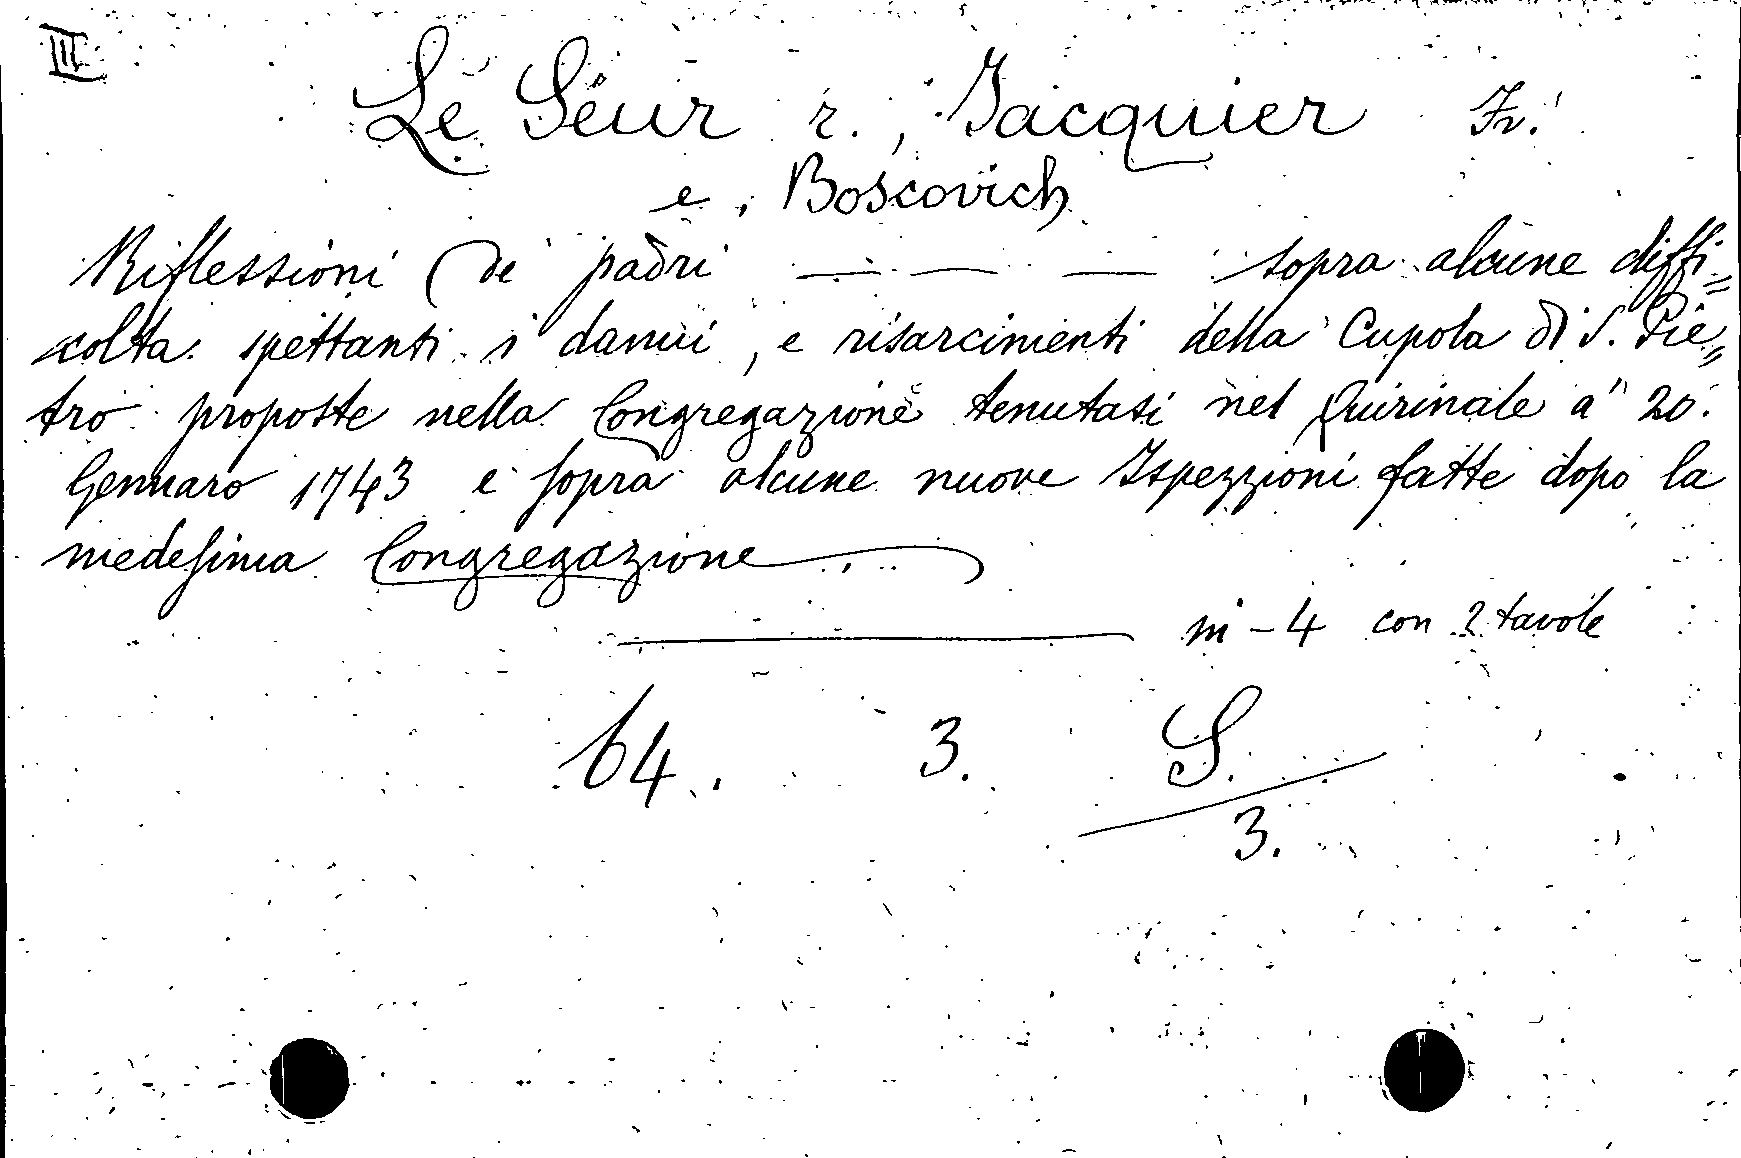 III
Le Seur r., Jacquier Fr.
e, Boscovich
Riflessioni (de' padri — — — sopra alcune diffi=
colta spettanti i danni, e risarcimenti della Cupola di S. Pie=
tro proposte nella Congregazione tenutasi nel Quirinale a" 20.
Gennaro 1743 e sopra alcune nuove Ispezzioni fatte dopo la
medesima Congregazione.
in-4 con 2 tavole
64. 3. S.
3.